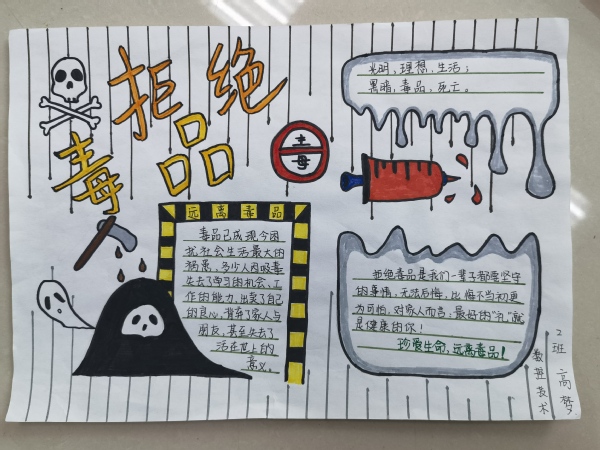 拒绝
毒品
毒
光明，理想，生活；
黑暗，毒品，死亡。
远离毒品
毒品已成现今困
扰社会生活最大的
祸患，多少人因吸毒
失去了学习的机会，工
作的能力，出卖了自己
的良心，背弃了家人与
朋友，甚至失去了
活在世上的
意义。
拒绝毒品是我们一辈子都要坚守
的事情，无法后悔，比悔不当初更
为可怕，对家人而言：最好的“礼”就
是健康的你！
珍爱生命，远离毒品！
2班 高梦
数控技术